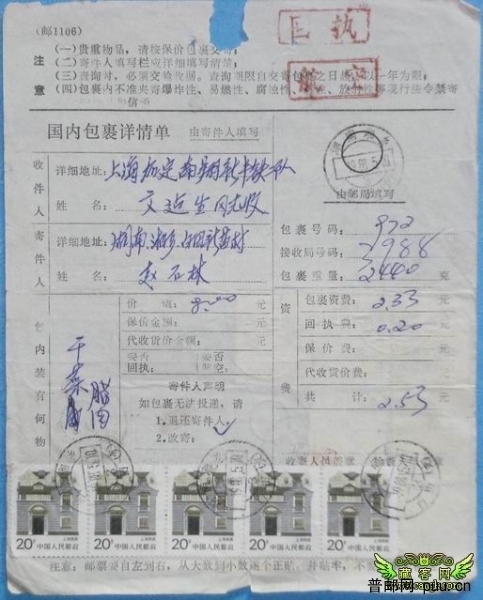 (邮1106)
回执
航空
注意
(一)贵重物品，请按保价包裹交寄；
(二)寄件人填写栏应详细填写清楚；
(三)查询时，必须交验收据。查询期限自交寄包裹之日起，以一年为限；
(四)包裹内不准夹寄爆炸性、易燃性、腐蚀性、
信函
国内包裹详情单 由寄件人填写
收件人
详细地址：上海 南翔
姓 名：文 生 收
由邮局填写
寄件人
详细地址：湖南湘乡
姓 名：赵石林
包裹号码：972
接收局号码：3988
包裹重量：2440 克
包内装有何物
干菜 腊肉
价 值：8.00 元
保价金额： 元
代收货价金额： 元
要否回执： 要否航空：
寄件人声明
如包裹无法投递，请
1.退还寄件人 ✓
2.改寄：
资费
包裹资费：2.33 元
回执费：0.20 元
保价费： 元
代收货价费： 元
共 计：2.53 元
收寄人员签章
20分 中国人民邮政
20分 中国人民邮政
20分 中国人民邮政
20分 中国人民邮政
20分 中国人民邮政
注意：邮票要自左到右，从大数到小数逐个正贴，
藏客网
普邮网-pu-u.cn